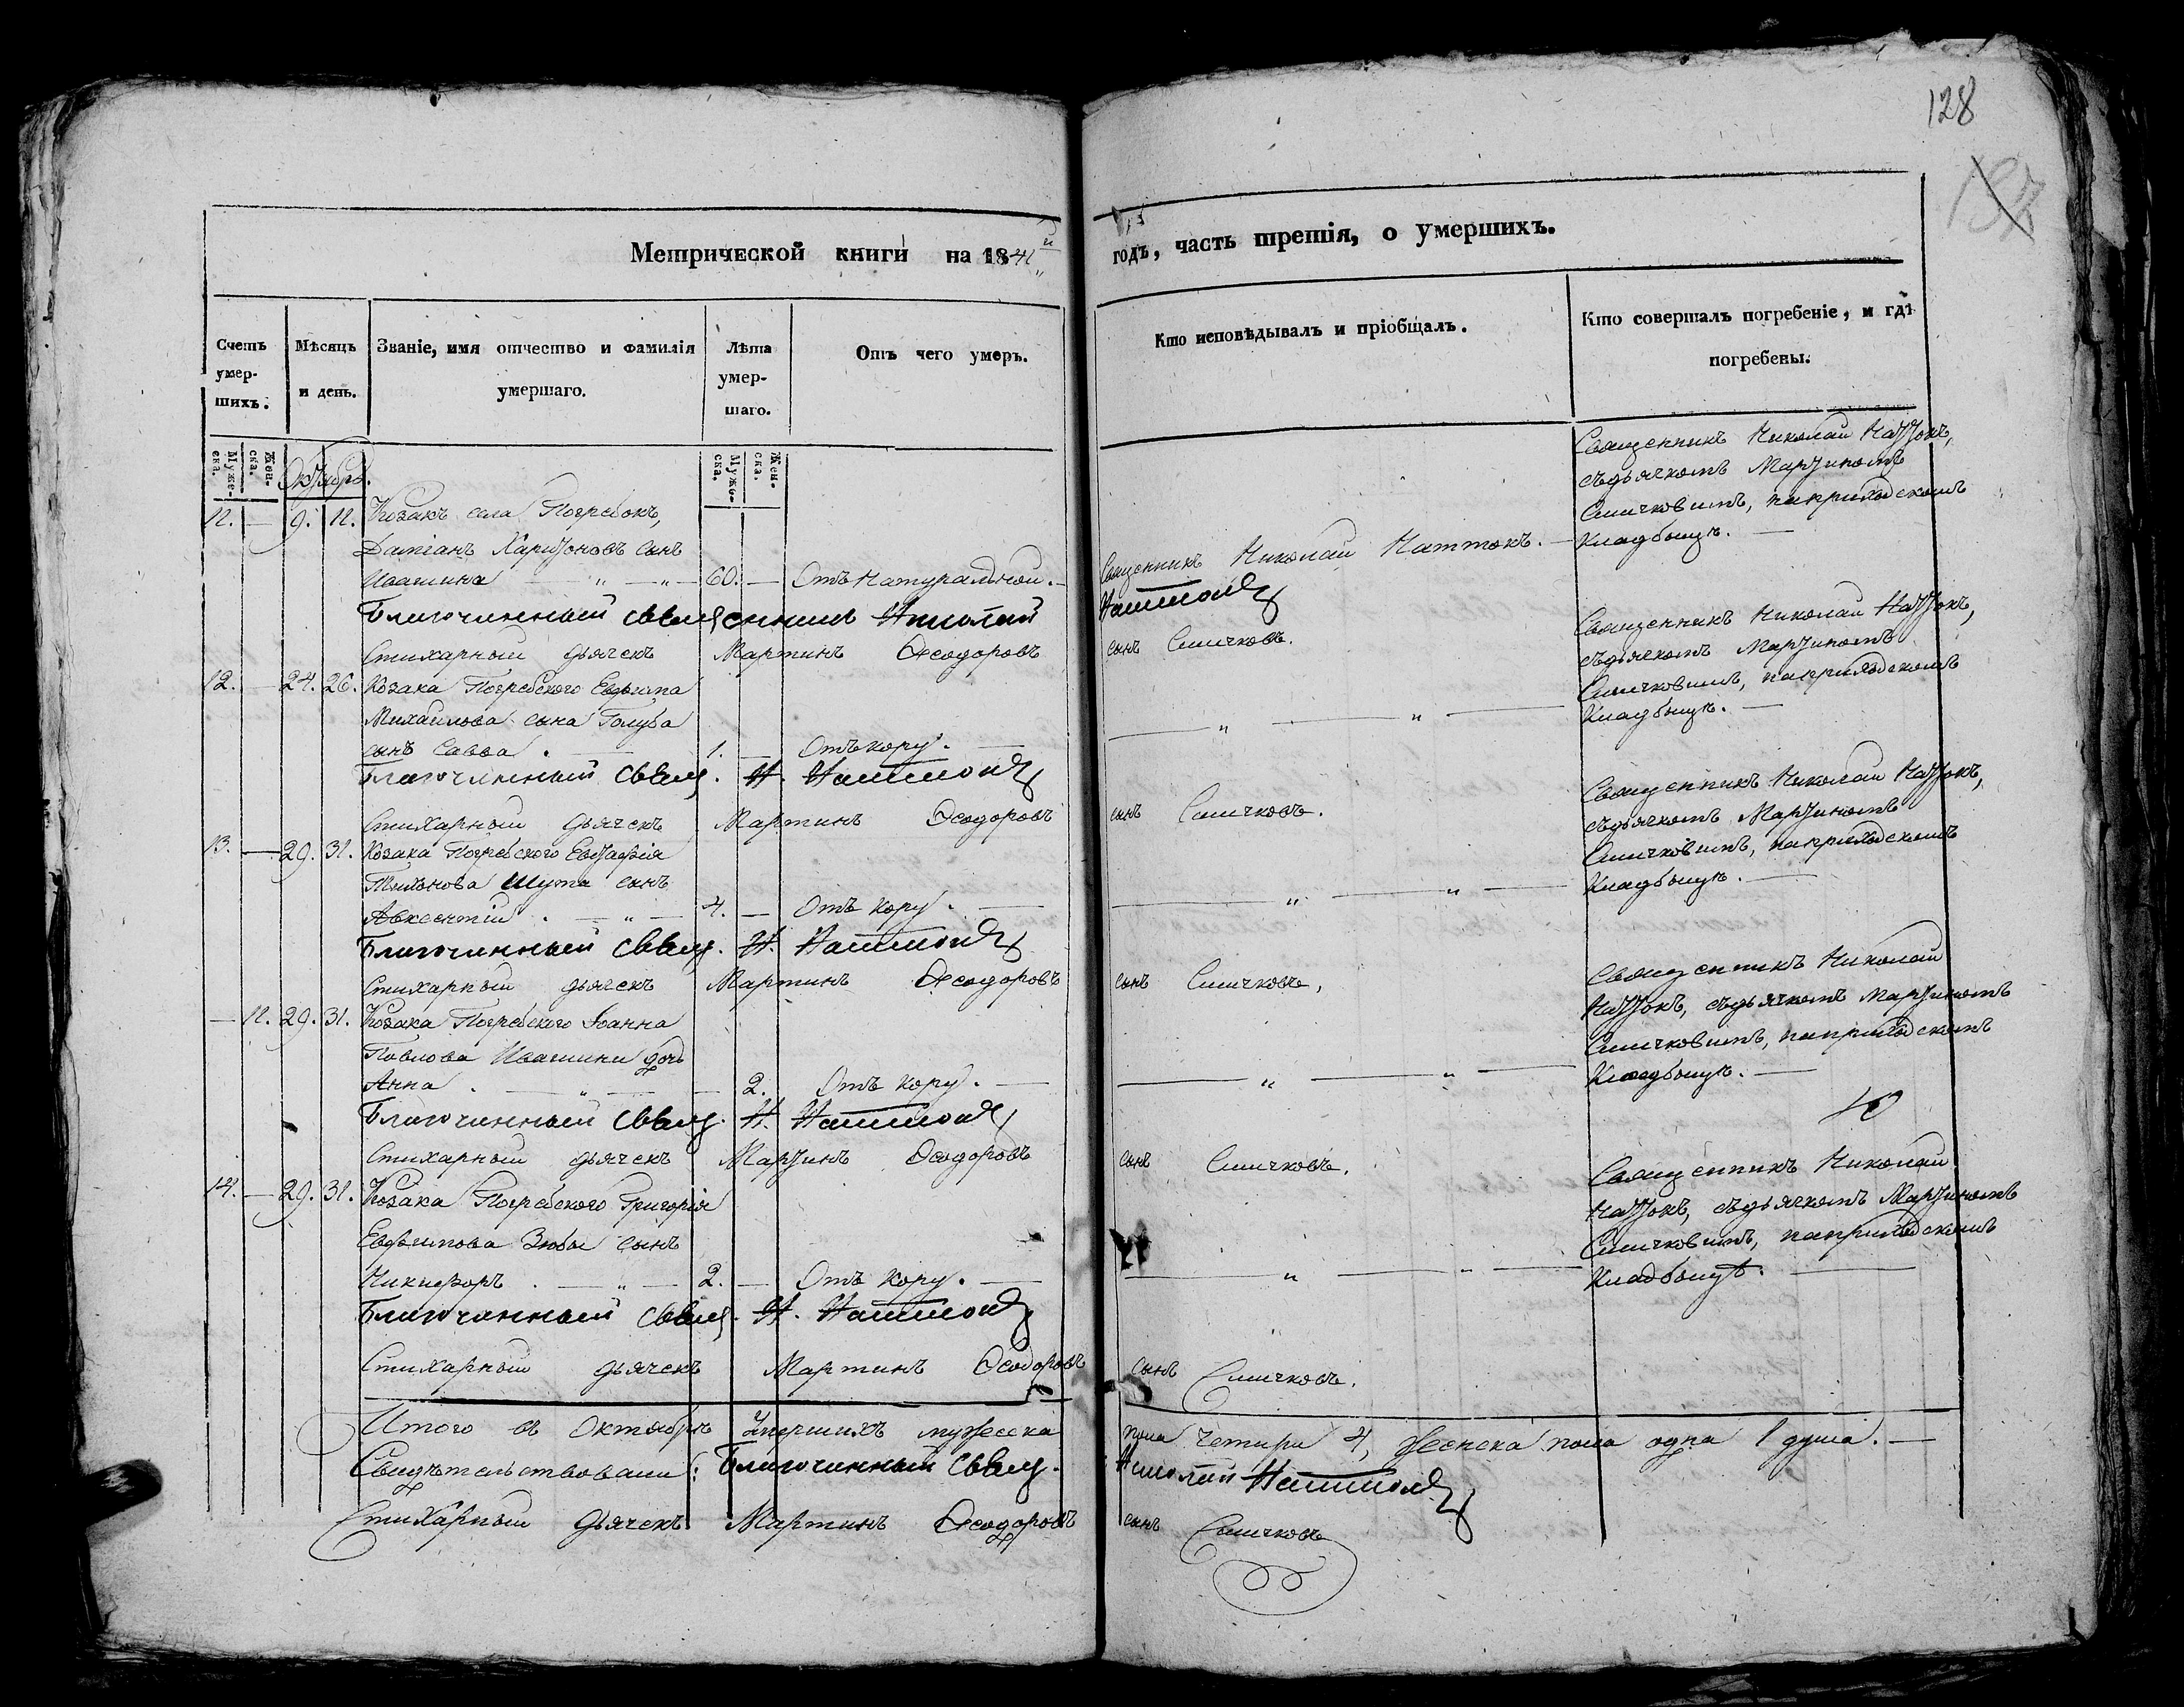 128
Метрической книги на 1841й
годъ, часть третія, о умершихъ.
Счетъ умер-шихъ.
Мѣсяцъ и день.
Званіе, имя отчество и фамилія умершаго.
Лѣта умер-шаго.
Отъ чего умеръ.
Кто исповѣдывалъ и пріобщалъ.
Кто совершалъ погребеніе, и гдѣ погребены.
Муже-ска.
Жен-ска.
Октябрь.
Муже-ска.
Жен-ска.
Священникъ Николай Наттокъ,
съдьячкомъ Мартиномъ
12. — 9. 12. Козакъ села Погребокъ,
Симчковимъ, наприходскомъ
Даміанъ Харитоновъ сынъ
Ивашина — „ — „ — 60. — Отъ натуралной. — Священникъ Николай Наттокъ. — Кладбищѣ. —
Благочинный священникъ Николай Наттокъ
Стихарный дьячекъ Мартинъ Ѳеодоровъ сынъ Симчковъ.
Священникъ Николай Наттокъ,
съдьячкомъ Мартиномъ
12. — 24. 26. Козака Погребского Евфима
Симчковимъ, наприходскомъ
Михайлова сына Голуба
Кладбищѣ. —
сынъ Савва . — 1. — Отъ кору. —
Благочинный свящ. Н. Наттокъ
Стихарный дьячекъ Мартинъ Ѳеодоровъ сынъ Симчковъ.
Священникъ Николай Наттокъ,
съдьячкомъ Мартиномъ
13. — 29. 31. Козака Погребского Евстафія
Симчковимъ, наприходскомъ
Шута сынъ
Кладбищѣ. —
Авксентій . — „ — 4. — Отъ кору. —
Благочинный свящ. Н. Наттокъ
Стихарный дьячекъ Мартинъ Ѳеодоровъ сынъ Симчковъ,
Священникъ Николай
Наттокъ, съдьячкомъ Мартиномъ
— 12. 29. 31. Козака Погребского Іоанна
Симчковимъ, наприходскомъ
Павлова Ивашини дочь
Кладбищѣ. —
Анна . — „ — 2. Отъ кору. —
Благочинный свящ. Н. Наттокъ
Стихарный дьячекъ Мартинъ Ѳеодоровъ сынъ Симчковъ.
Священникъ Николай
Наттокъ, съдьячкомъ Мартиномъ
14. — 29. 31. Козака Погребского Григорія
Симчковимъ, наприходскомъ
Евфимова Зюбы сынъ
Кладбищѣ. —
Никифоръ . — „ — 2. — Отъ кору. —
Благочинный свящ. Н. Наттокъ
Стихарный дьячекъ Мартинъ Ѳеодоровъ сынъ Симчковъ.
Итого въ Октябрѣ Умершихъ мужеска пола четири 4, женска пола одна 1 душа. —
Свидѣтельствовали: Благочинный свящ. Николай Наттокъ
Стихарный дьячекъ Мартинъ Ѳеодоровъ сынъ Симчковъ